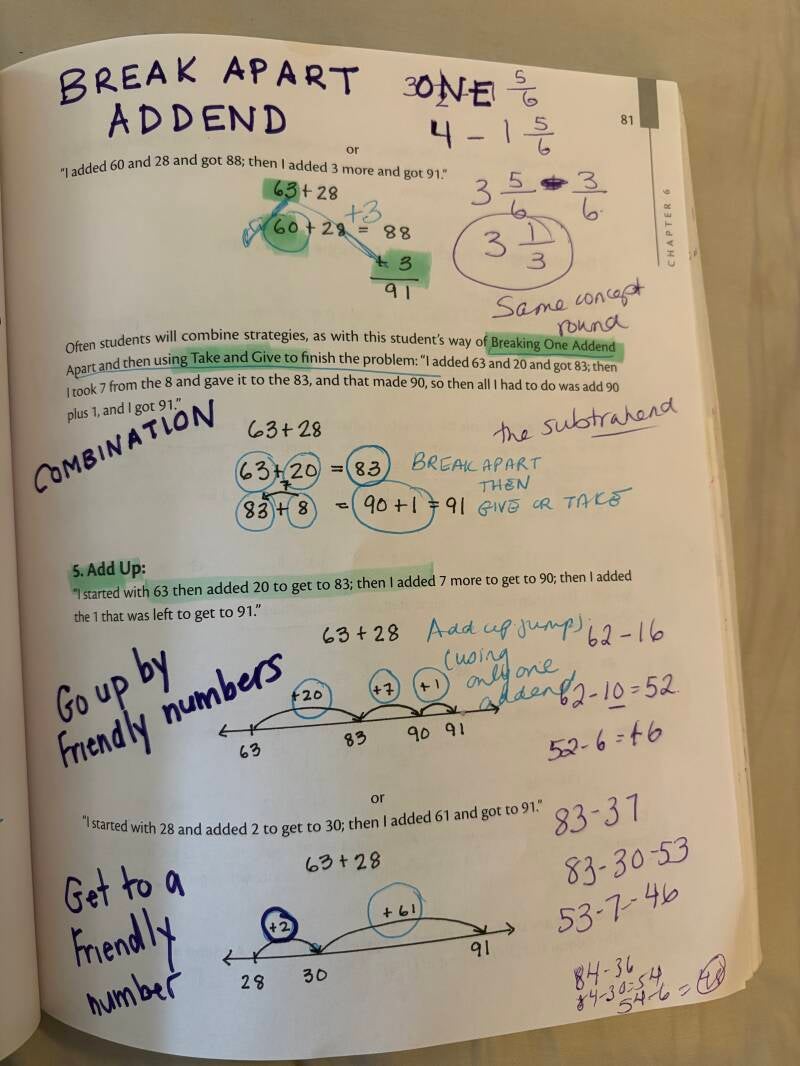 BREAK APART
ONE 5/6
ADDEND
4 - 1 5/6
81
or
"I added 60 and 28 and got 88; then I added 3 more and got 91."
3 5/6 - 3/6
63 + 28
+3
60 + 28 = 88
3 1/3
+ 3
91
CHAPTER 6
Same concept
round
the subtrahend
Often students will combine strategies, as with this student's way of Breaking One Addend
Apart and then using Take and Give to finish the problem: "I added 63 and 20 and got 83; then
I took 7 from the 8 and gave it to the 83, and that made 90, so then all I had to do was add 90
plus 1, and I got 91."
COMBINATION
63 + 28
63 + 20 = 83
BREAK APART
THEN
GIVE OR TAKE
7
83 + 8 = 90 + 1 = 91
5. Add Up:
"I started with 63 then added 20 to get to 83; then I added 7 more to get to 90; then I added
the 1 that was left to get to 91."
63 + 28
Add up jumps
(using
only one
addend)
Go up by
Friendly numbers
+20 +7 +1
63 83 90 91
62 - 16
62 - 10 = 52
52 - 6 = 46
or
"I started with 28 and added 2 to get to 30; then I added 61 and got to 91."
83 - 37
83 - 30 - 53
53 - 7 - 46
63 + 28
Get to a
Friendly
number
+2 +61
28 30 91
84 - 36
84 - 30 = 54
54 - 6 = 48